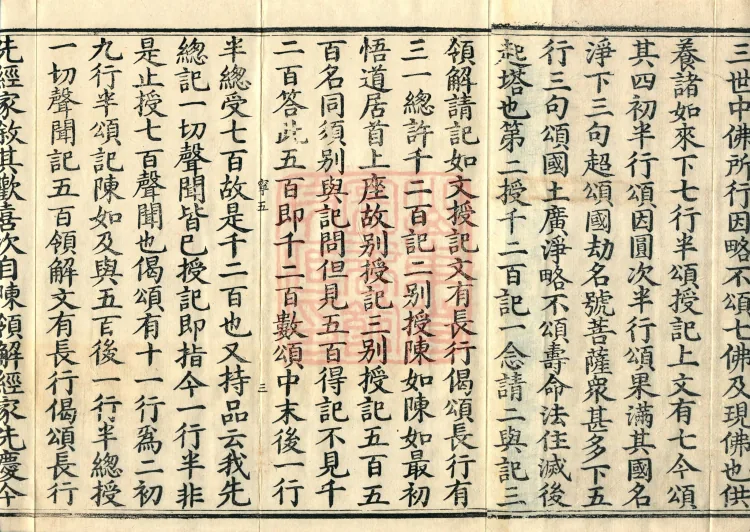 三世中佛所行因略不頌七佛及現佛也供
養諸如來下七行半頌授記上文有七今頌
其四初半行頌因圓次半行頌果滿其國名
淨下三句超頌國劫名號菩薩衆甚多下五
行三句頌國土廣淨略不頌壽命法住滅後
起塔也第二授千二百記一念請二與記三
領解請記如文授記文有長行偈頌長行有
三一總許千二百記二別授陳如陳如最初
悟道居首上座故別授記三別授記五百五
百名同須別與記問但見五百得記不見千
二百答此五百即千二百數頌中末後一行
寧五
三
半總受七百故是千二百也又持品云我先
總記一切聲聞皆已授記即指今一行半非
是止授七百聲聞也偈頌有十一行爲二初
九行半頌記陳如及與五百後一行半總授
一切聲聞記五百領解文有長行偈頌長行
先經家敘其歡喜次自陳領解經家先慶今